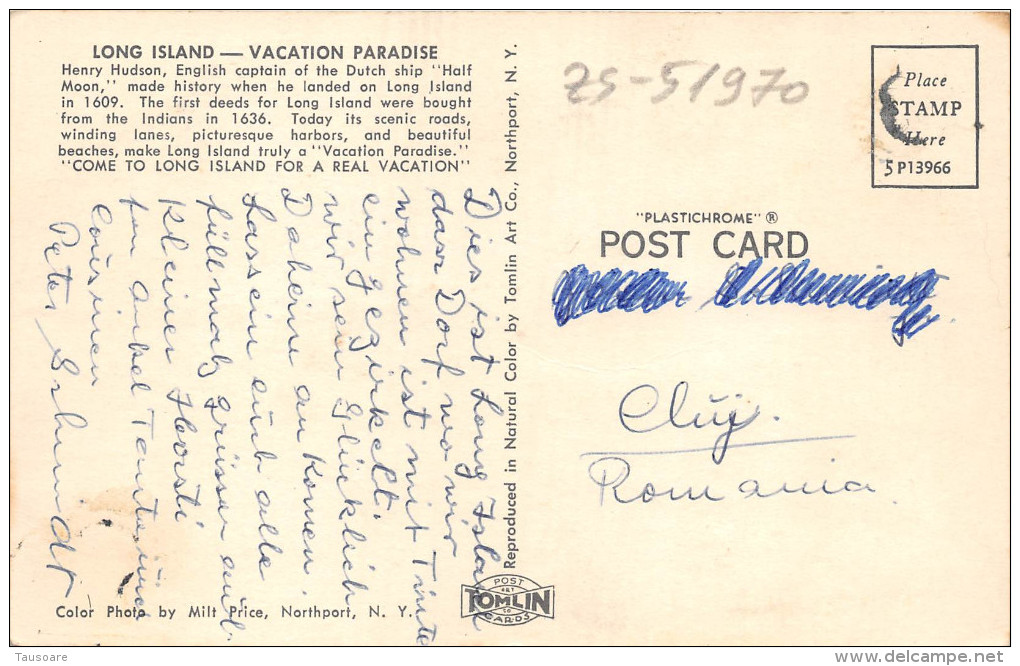 LONG ISLAND — VACATION PARADISE
Henry Hudson, English captain of the Dutch ship "Half
Moon," made history when he landed on Long Island
in 1609. The first deeds for Long Island were bought
from the Indians in 1636. Today its scenic roads,
winding lanes, picturesque harbors, and beautiful
beaches, make Long Island truly a "Vacation Paradise."
"COME TO LONG ISLAND FOR A REAL VACATION"
Dies ist Long Island
dass Dorf wo wir
wohnen ist mit Tinte
eingezirkelt.
wir sein Glücklich
Daheim an Komen.
Lassein euch alle
füllmalz Grüssen und
Kleiner Horsti
fon onkel Tante und
Cousinen
Peter Schmidt
Color Photo by Milt Price, Northport, N. Y.
Reproduced in Natural Color by Tomlin Art Co., Northport, N. Y.
POST
ART
TOMLIN
CO
CARDS
25-5/970
Place
STAMP
Here
5P13966
"PLASTICHROME" ®
POST CARD
Cluj.
Romania
Tausoare
www.delcampe.net